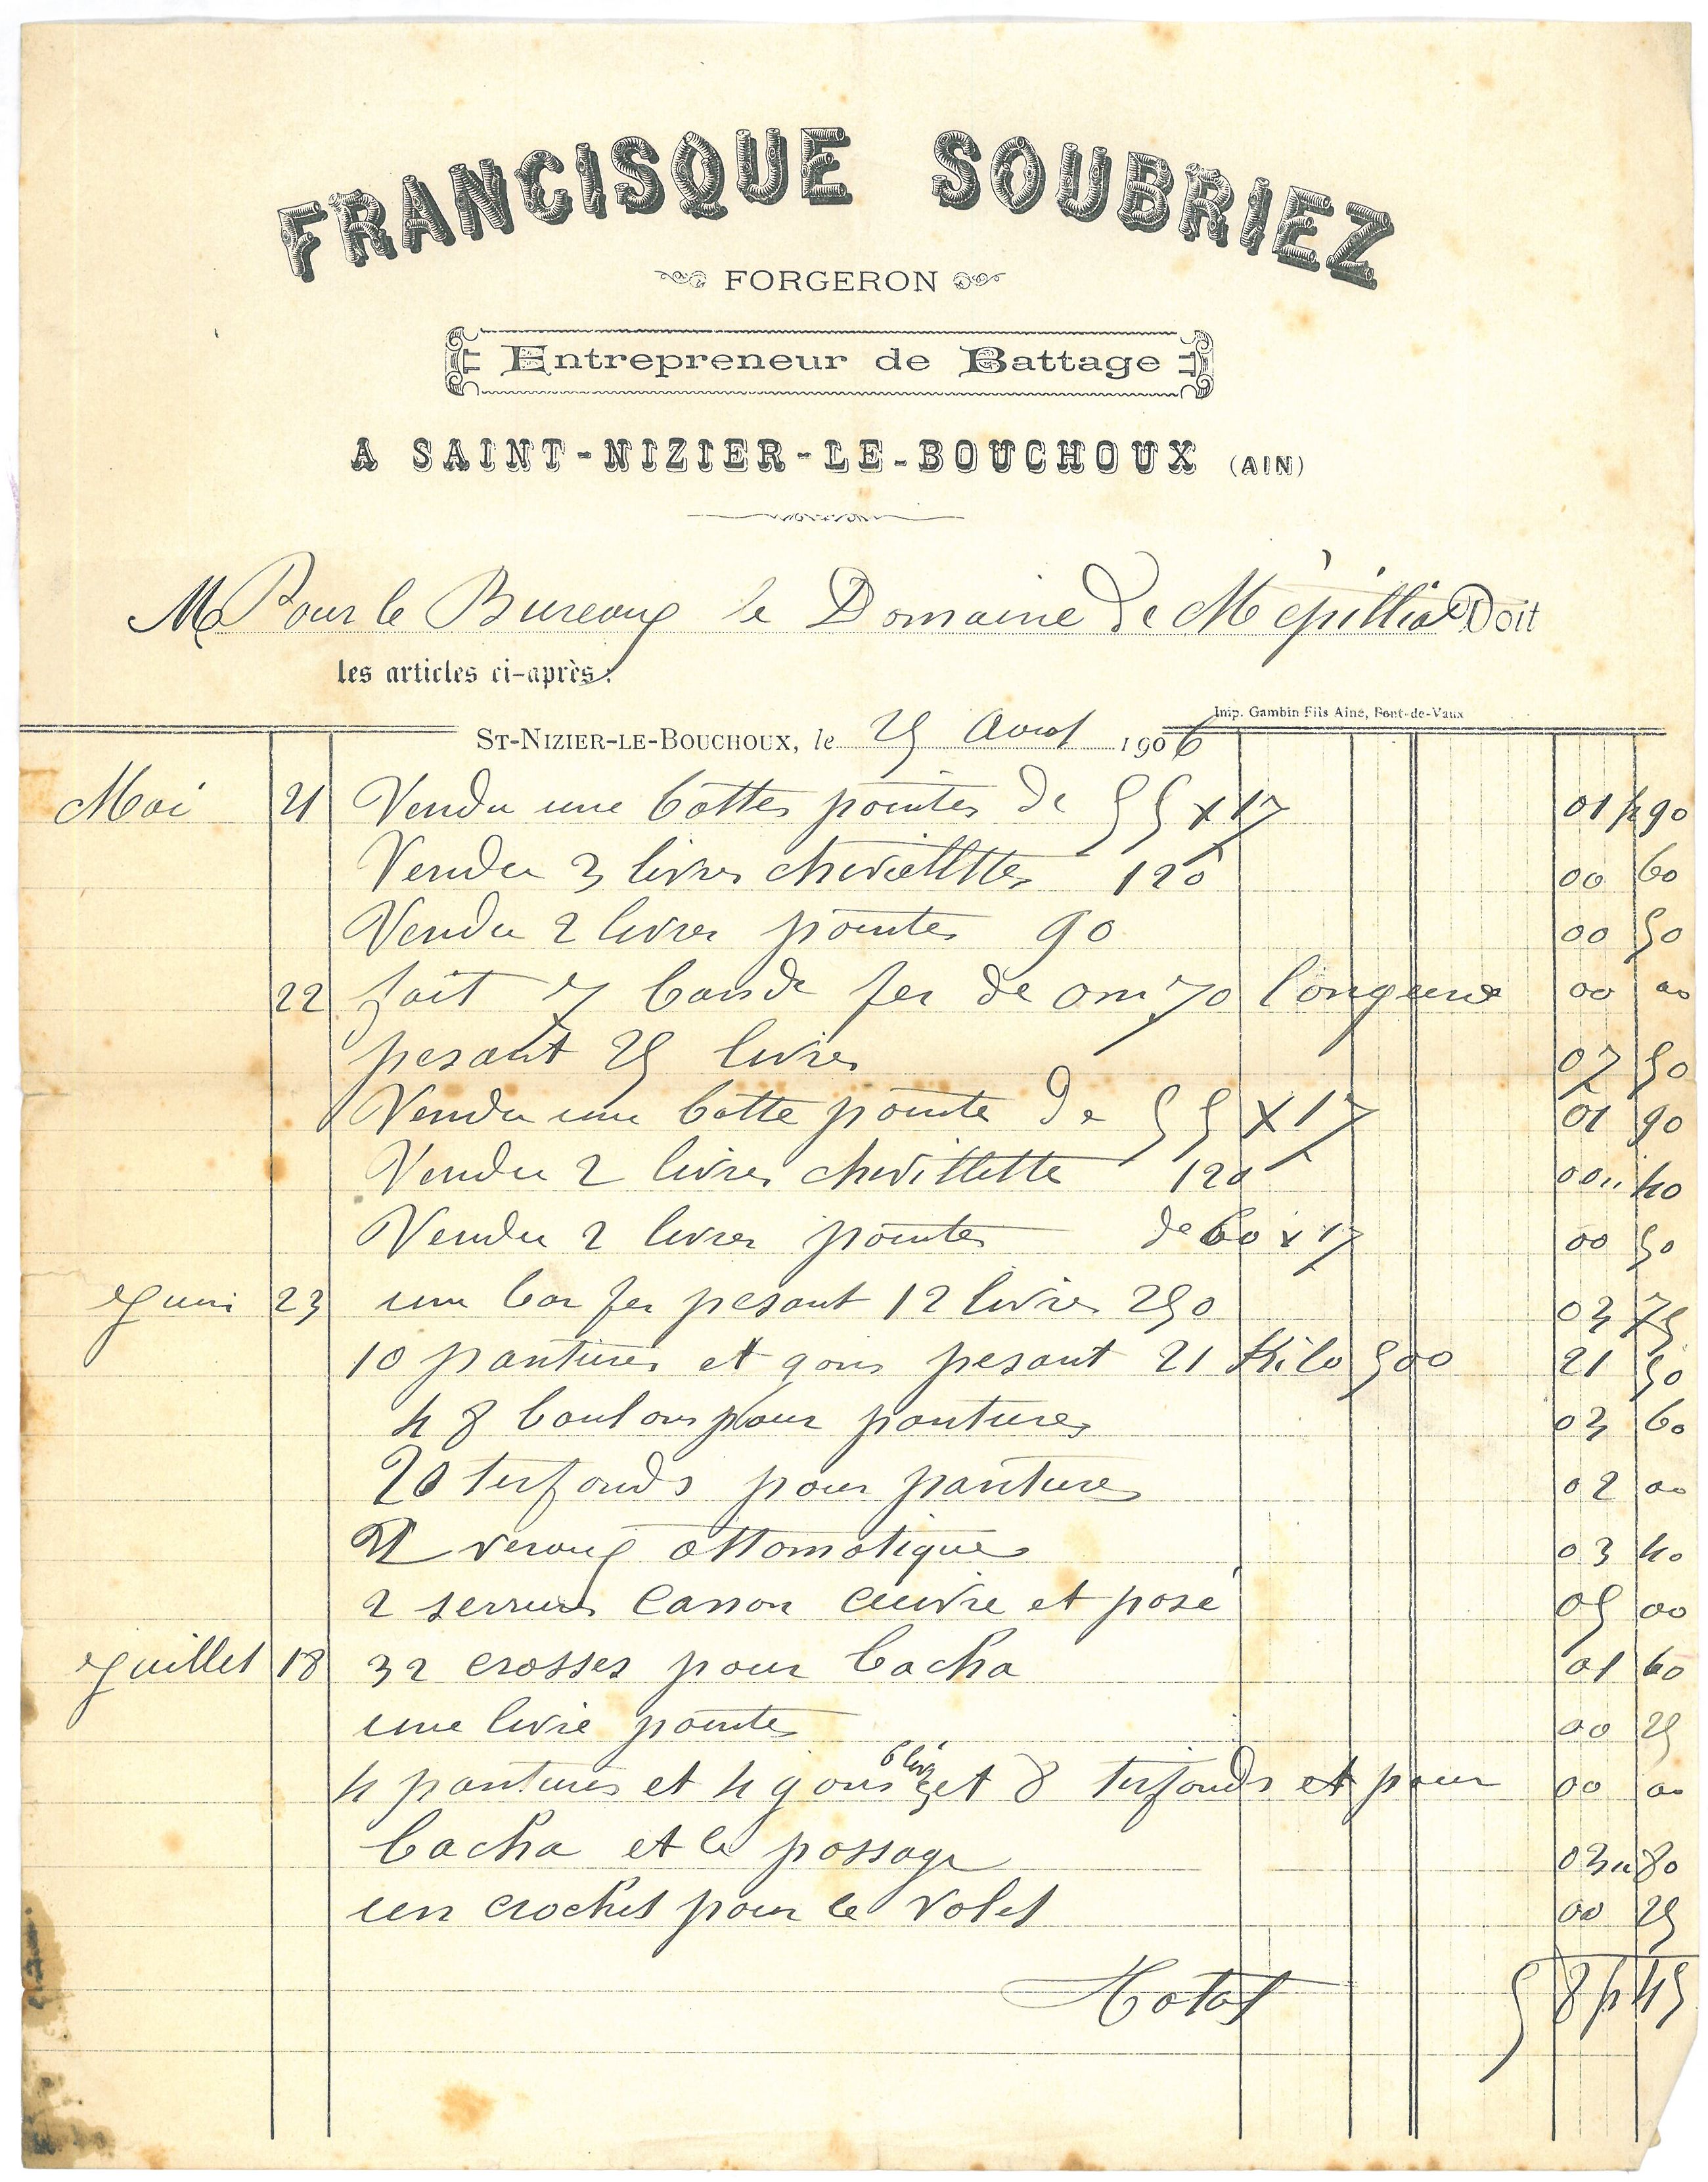 FRANCISQUE SOUBRIEZ
FORGERON
Entrepreneur de Battage
A SAINT-NIZIER-LE-BOUCHOUX (AIN)
M Pour le Bureaux le Domaine de Mépilliat Doit
les articles ci-après:
Imp. Gambin Fils Ainé, Pont-de-Vaux
ST-NIZIER-LE-BOUCHOUX, le 25 Avril 1906
Mai 21 Vendu une bottes pointes de 55 x 17 01 f 90
Vendu 3 livres chevillttes 120 00 60
Vendu 2 livres pointes 90 00 50
22 fait 7 bande fer de 0m70 longueur 00 00
pesant 25 livres 07 50
Vendu une botte pointe de 55 x 17 01 90
Vendu 2 livres chevillette 120 00 40
Vendu 2 livres pointes de 60 x 17 00 50
Juin 23 une bar fer pesant 12 livres 250 03 75
10 pantures et gons pesant 21 Kilo 500 21 50
48 boulons pour pantures 03 60
20 tirfonds pour pantures 02 00
2 veroux ottomatiques 03 40
2 serrures canon cuivre et posé 05 00
Juillet 18 32 crosses pour bacha 01 60
une livre pointes 00 25
4 pantures et 4 gons 6 liv et 8 tirfonds et pour 00 00
bacha et le possage 03 80
un crochet pour le volet 00 25
Total 58 f 45